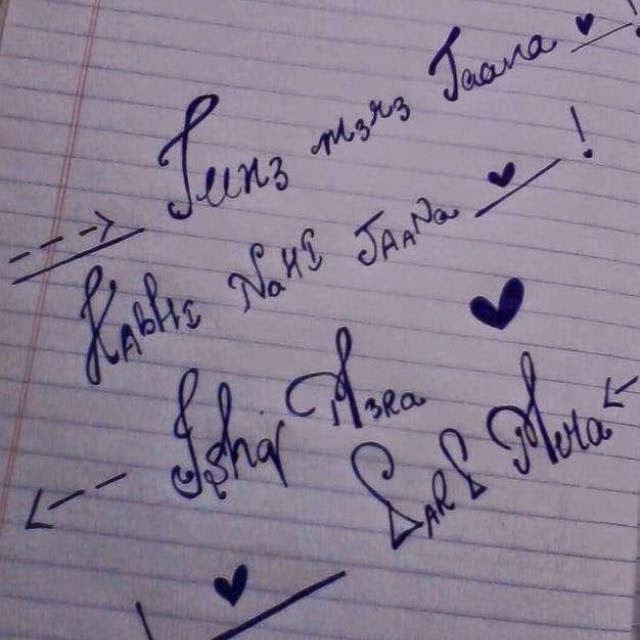 Tune mere Jaana
Kabhi Nahi Jaana !
Ishq Mera
Dard Mera